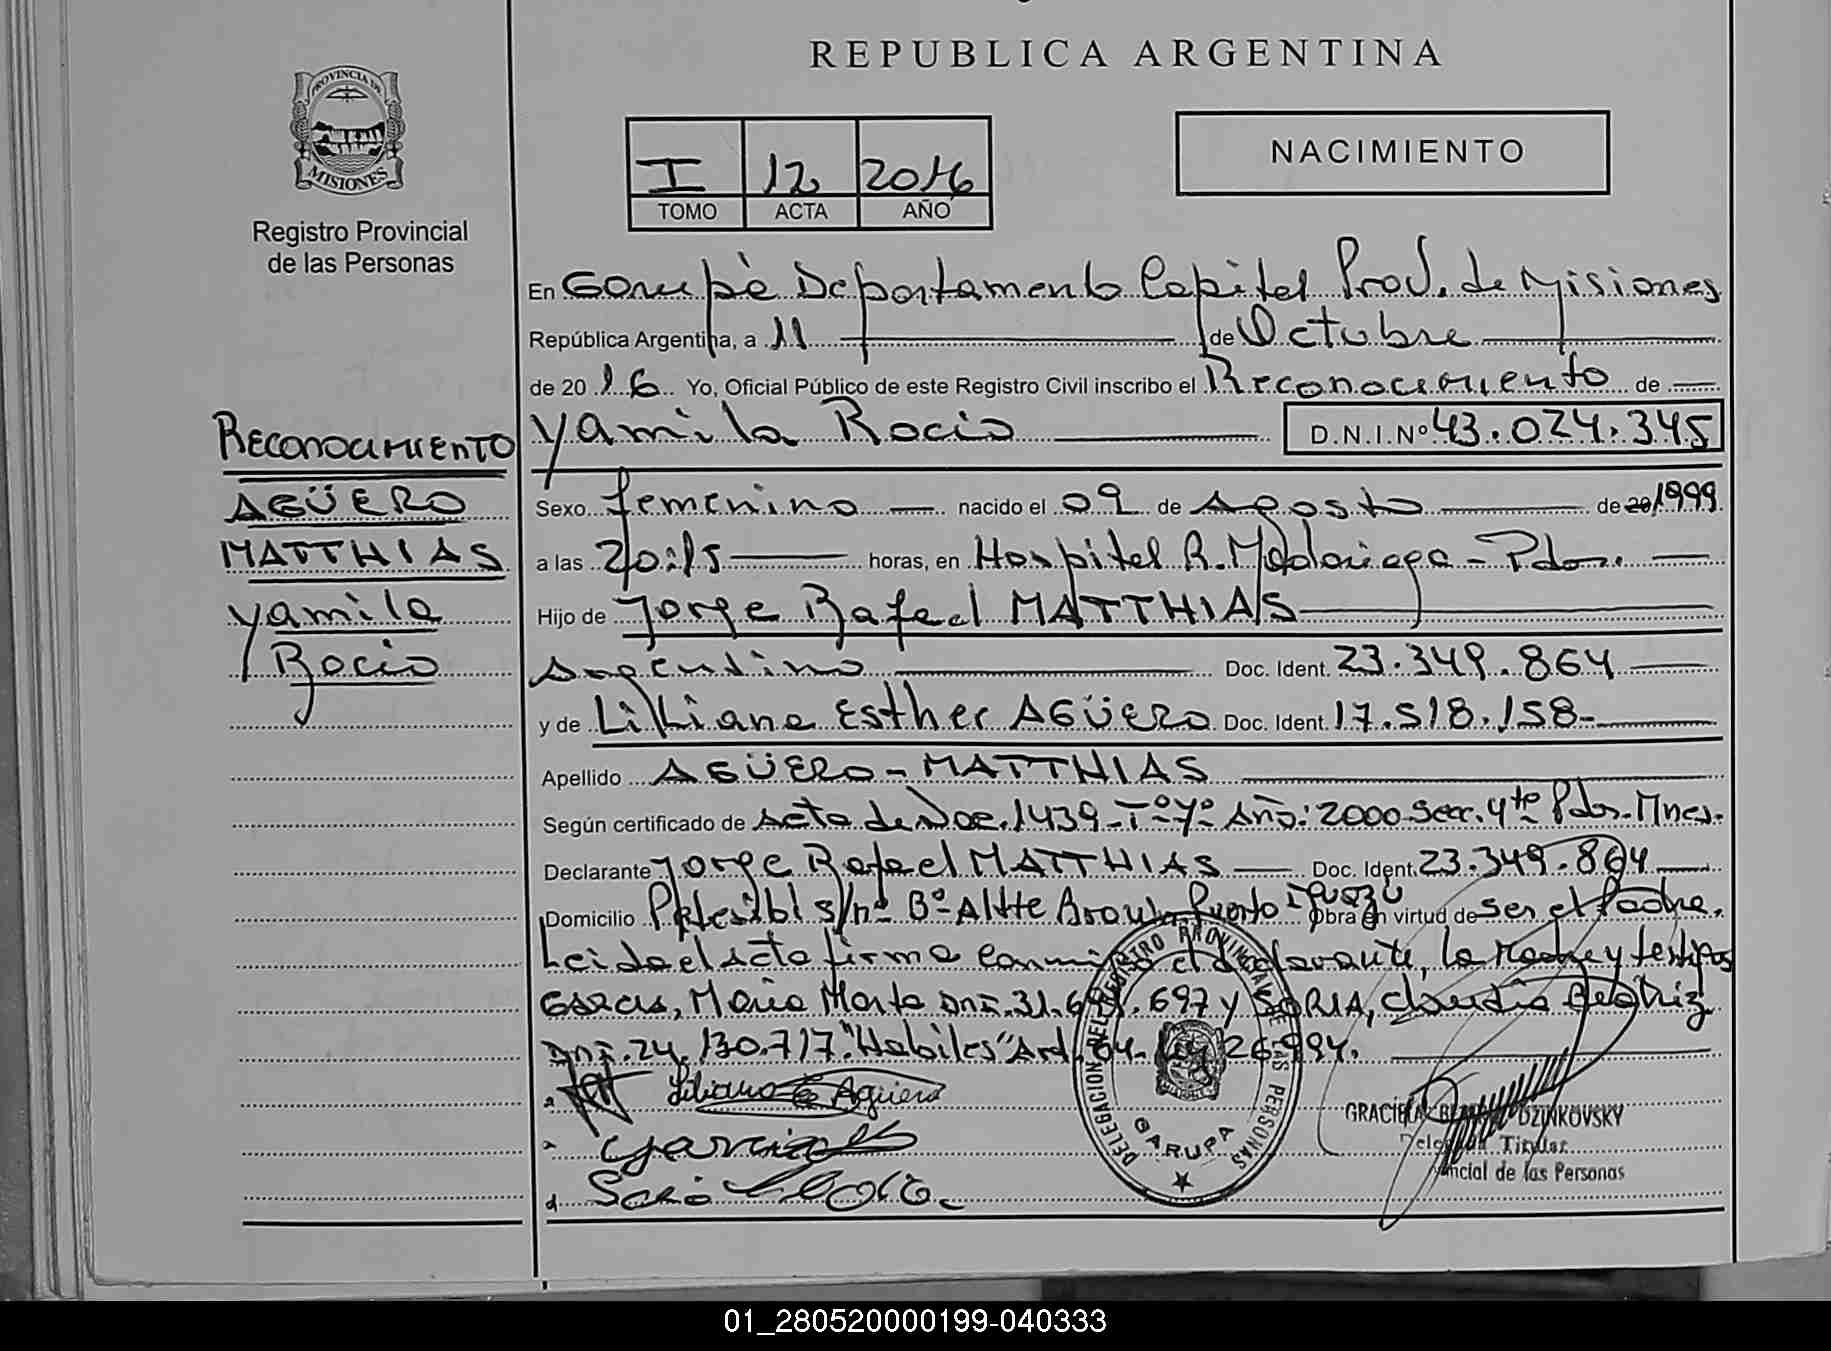 REPUBLICA ARGENTINA
PROVINCIA DE
MISIONES
Registro Provincial
de las Personas
I 12 2016
TOMO ACTA AÑO
NACIMIENTO
En Garupá Departamento Capital Prov. de Misiones
República Argentina, a 11 de Octubre
de 2016 Yo, Oficial Público de este Registro Civil inscribo el Reconocimiento de
Yamila Rocio D.N.I.Nº 43.024.345
RECONOCIMIENTO
AGÜERO
MATTHIAS
Yamila
Rocio
Sexo femenino nacido el 09 de Agosto de 20 1999
a las 20:15 horas, en Hospital R. Madariaga - Pdas.
Hijo de Jorge Rafael MATTHIAS
Argentino Doc. Ident. 23.349.864
y de Liliana Esther AGÜERO Doc. Ident. 17.518.158-
Apellido AGÜERO-MATTHIAS
Según certificado de Acta de Nac. 1439-Tº-7º-Año: 2000 Secc. 4ta Pdas. Mnes.
Declarante Jorge Rafael MATTHIAS Doc. Ident. 23.349.864
Domicilio s/nº Bº Altte Brown Puerto Iguazú Obra en virtud de ser el Padre.
Leida el acta firma conmigo el declarante, la Madre y testigos
Garcia, Maria Marta DNI. 31. .697 y SORIA, Claudia Beatriz
DNI. 24.130.717. "Habiles" Art. 64. Ley 26.994.
Liliana E Agüero
Garcia
Soria
DELEGACION DEL REGISTRO PROVINCIAL DE LAS PERSONAS
GARUPA
GRACIELA DZINKOVSKY
Titular
de las Personas
01_280520000199-040333